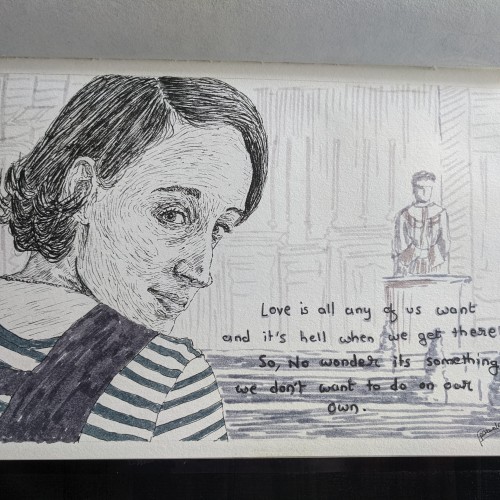 Love is all any of us want
and it's hell when we get there
So, No wonder its something
we don't want to do on our
own.